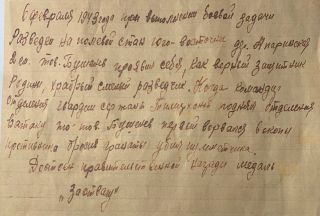 6 февраля 1943 года при выполнении боевой задачи
Разведки на полевой стан юго-восточн дер.
тов. Бушенев проявил себя, как верный защитник
Родины, храбрый смелый разведчик. Когда командир
отделения гвардии сержант поднял отделение
в атаку то тов. Бушенев первый ворвался в окопы
противника бросил гранаты убил немчика.
Достоин правительственной награды медаль
"За отвагу"